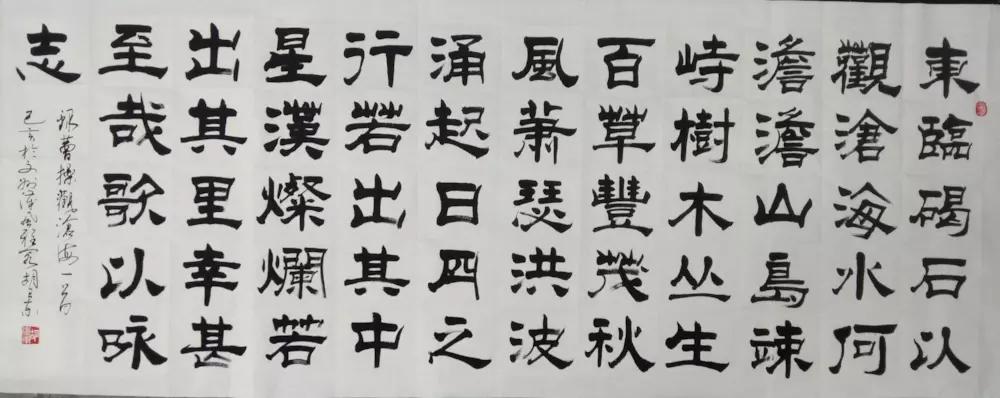 東臨碣石以
觀滄海水何
澹澹山島竦
峙樹木丛生
百草豐茂秋
風蕭瑟洪波
涌起日四之
行若出其中
星漢燦爛若
出其里幸甚
至哉歌以咏
志
録曹操觀滄海一首
己亥於文